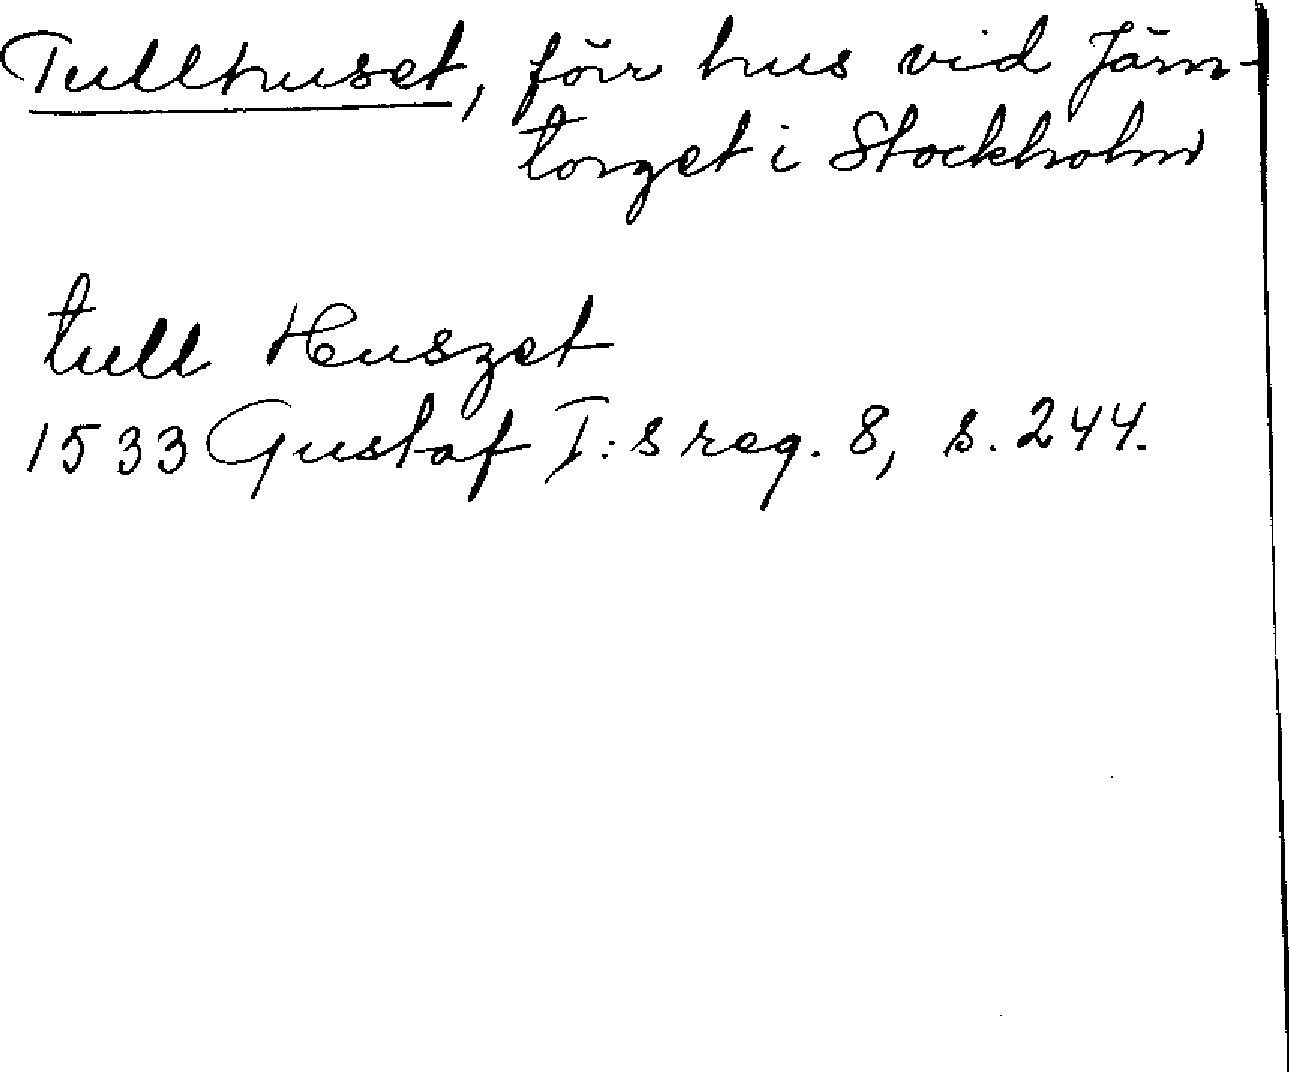 Tullhuset, förr hus vid Järn-
torget i Stockholm
tull Huszet
1533 Gustaf I:s reg. 8, s. 244.